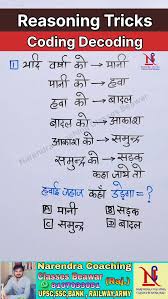 Reasoning Tricks
Coding Decoding
1 यदि वर्षा को → पानी
पानी को → हवा
हवा को → बादल
बादल को → आकाश
आकाश को → समुन्द्र
समुन्द्र को → सड़क
कहा जाये तो
हवाई जहाज कहाँ उड़ेगा = ?
A पानी B सड़क
C समुन्द्र D बादल
Narendra Coaching
Classes Beawar (Raj.)
8107355051
UPSC,SSC,BANK,RAILWAY,ARMY